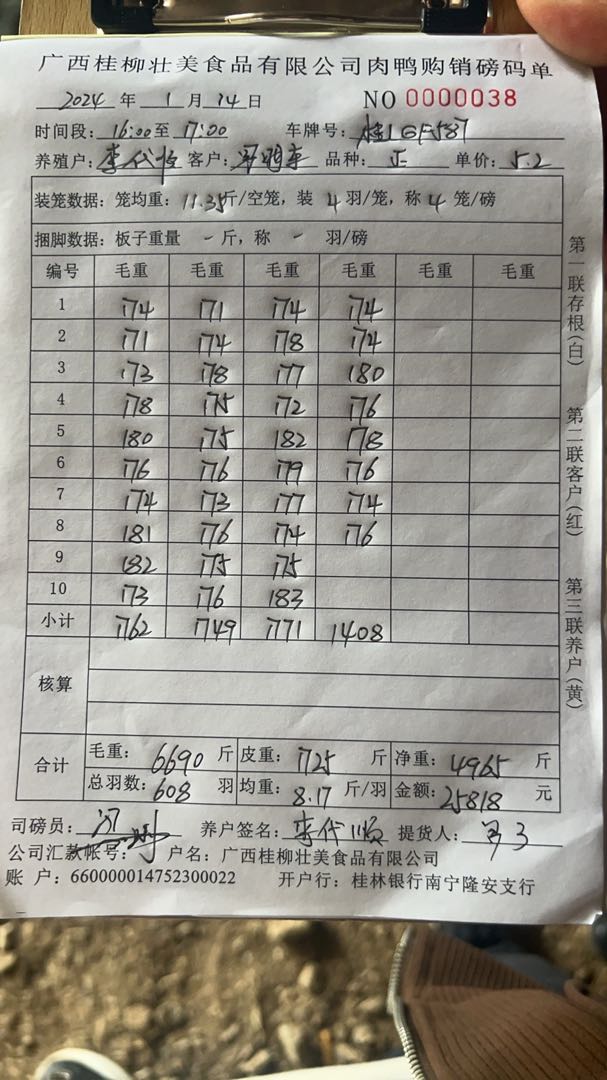 广西桂柳壮美食品有限公司肉鸭购销磅码单
2024 年 1 月 14 日 NO 0000038
时间段: 16:00 至 17:00 车牌号: 桂1GF587
养殖户: 李代 客户: 品种: 正 单价: 5.2
装笼数据: 笼均重: 11.35 斤/空笼, 装 4 羽/笼, 称 4 笼/磅
捆脚数据: 板子重量 - 斤, 称 - 羽/磅
编号 毛重 毛重 毛重 毛重 毛重 毛重
1 174 171 174 174
2 171 174 178 174
3 173 178 177 180
4 178 175 172 176
5 180 175 182 178
6 176 176 179 176
7 174 173 177 174
8 181 176 174 176
9 182 175 175
10 173 176 183
小计 1762 1749 1771 1408
核算
合计 毛重: 6690 斤 皮重: 1725 斤 净重: 4965 斤
总羽数: 608 羽 均重: 8.17 斤/羽 金额: 25818 元
司磅员: 养户签名: 李代顺 提货人:
公司汇款帐号: 户名: 广西桂柳壮美食品有限公司
账 户: 660000014752300022 开户行: 桂林银行南宁隆安支行
第一联存根(白)
第二联客户(红)
第三联养户(黄)